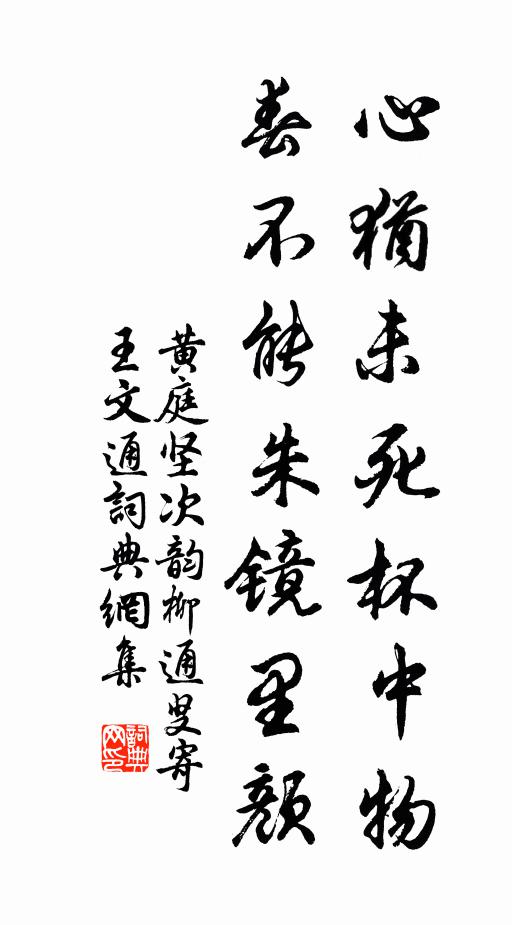 心猶未死杯中物
春不能朱镜里顏
黄庭坚次韵柳通叟寄
王文通詞典網集
詞典网印